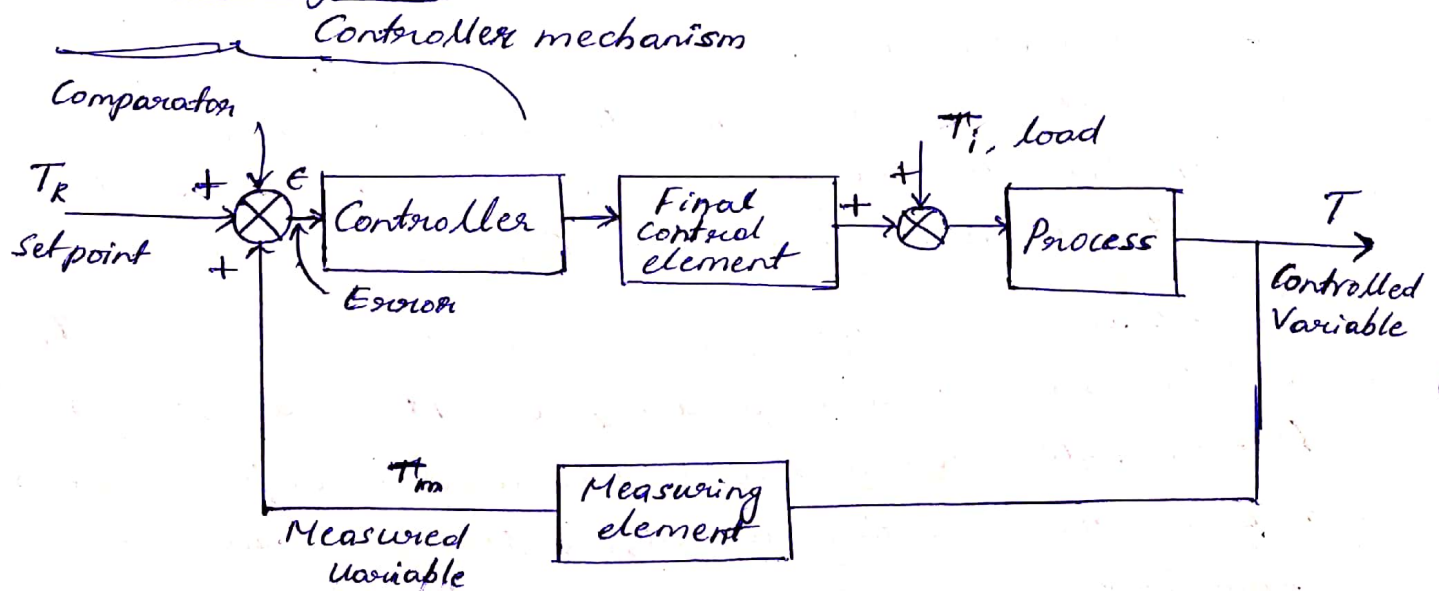 Controller mechanism
Comparator
T_R
Set point
+
+
ϵ
Error
Controller
Final
control
element
+
+
T_i, load
Process
T
Controlled
Variable
T_m
Measured
Variable
Measuring
element